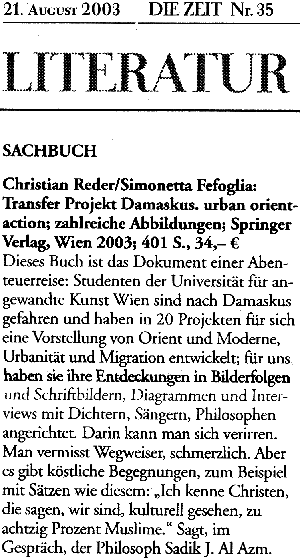 21. AUGUST 2003 DIE ZEIT Nr. 35
LITERATUR
SACHBUCH
Christian Reder/Simonetta Fefoglia:
Transfer Projekt Damaskus. urban orient-
action; zahlreiche Abbildungen; Springer
Verlag, Wien 2003; 401 S., 34,– €
Dieses Buch ist das Dokument einer Aben-
teuerreise: Studenten der Universität für an-
gewandte Kunst Wien sind nach Damaskus
gefahren und haben in 20 Projekten für sich
eine Vorstellung von Orient und Moderne,
Urbanität und Migration entwickelt; für uns
haben sie ihre Entdeckungen in Bilderfolgen
und Schriftbildern, Diagrammen und Inter-
views mit Dichtern, Sängern, Philosophen
angerichtet. Darin kann man sich verirren.
Man vermisst Wegweiser, schmerzlich. Aber
es gibt köstliche Begegnungen, zum Beispiel
mit Sätzen wie diesem: „Ich kenne Christen,
die sagen, wir sind, kulturell gesehen, zu
achtzig Prozent Muslime.“ Sagt, im
Gespräch, der Philosoph Sadik J. Al Azm.